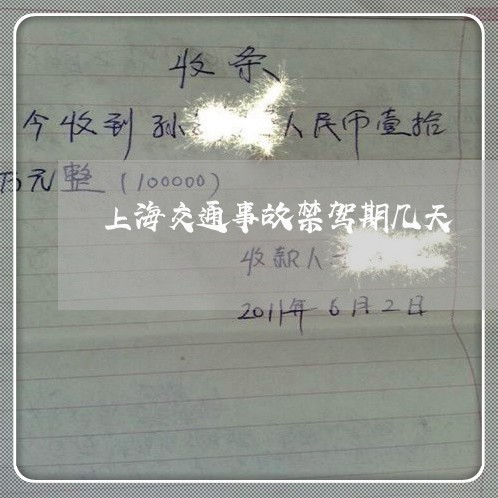 收条
今收到孙 人民币壹拾
万元整(100000)
上海交通事故禁驾期几天
收款人
2011年6月2日